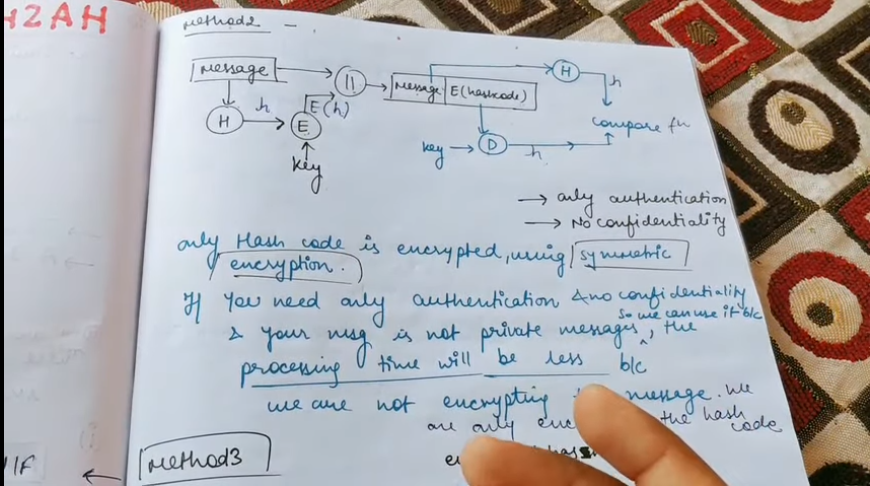 HZAH
Method2 -
Message
||
Message E(hashcode)
H
h
H
h
E
E(h)
Key
Key
D
h
compare fn
→ only authentication
→ No confidentiality
only Hash code is encrypted, using symmetric
encryption.
If You need only authentication & no confidentiality
so we can use it b/c
& your msg is not private messages, the
processing time will be less b/c
we are not encrypting message. We
are only the hash
code
Method3